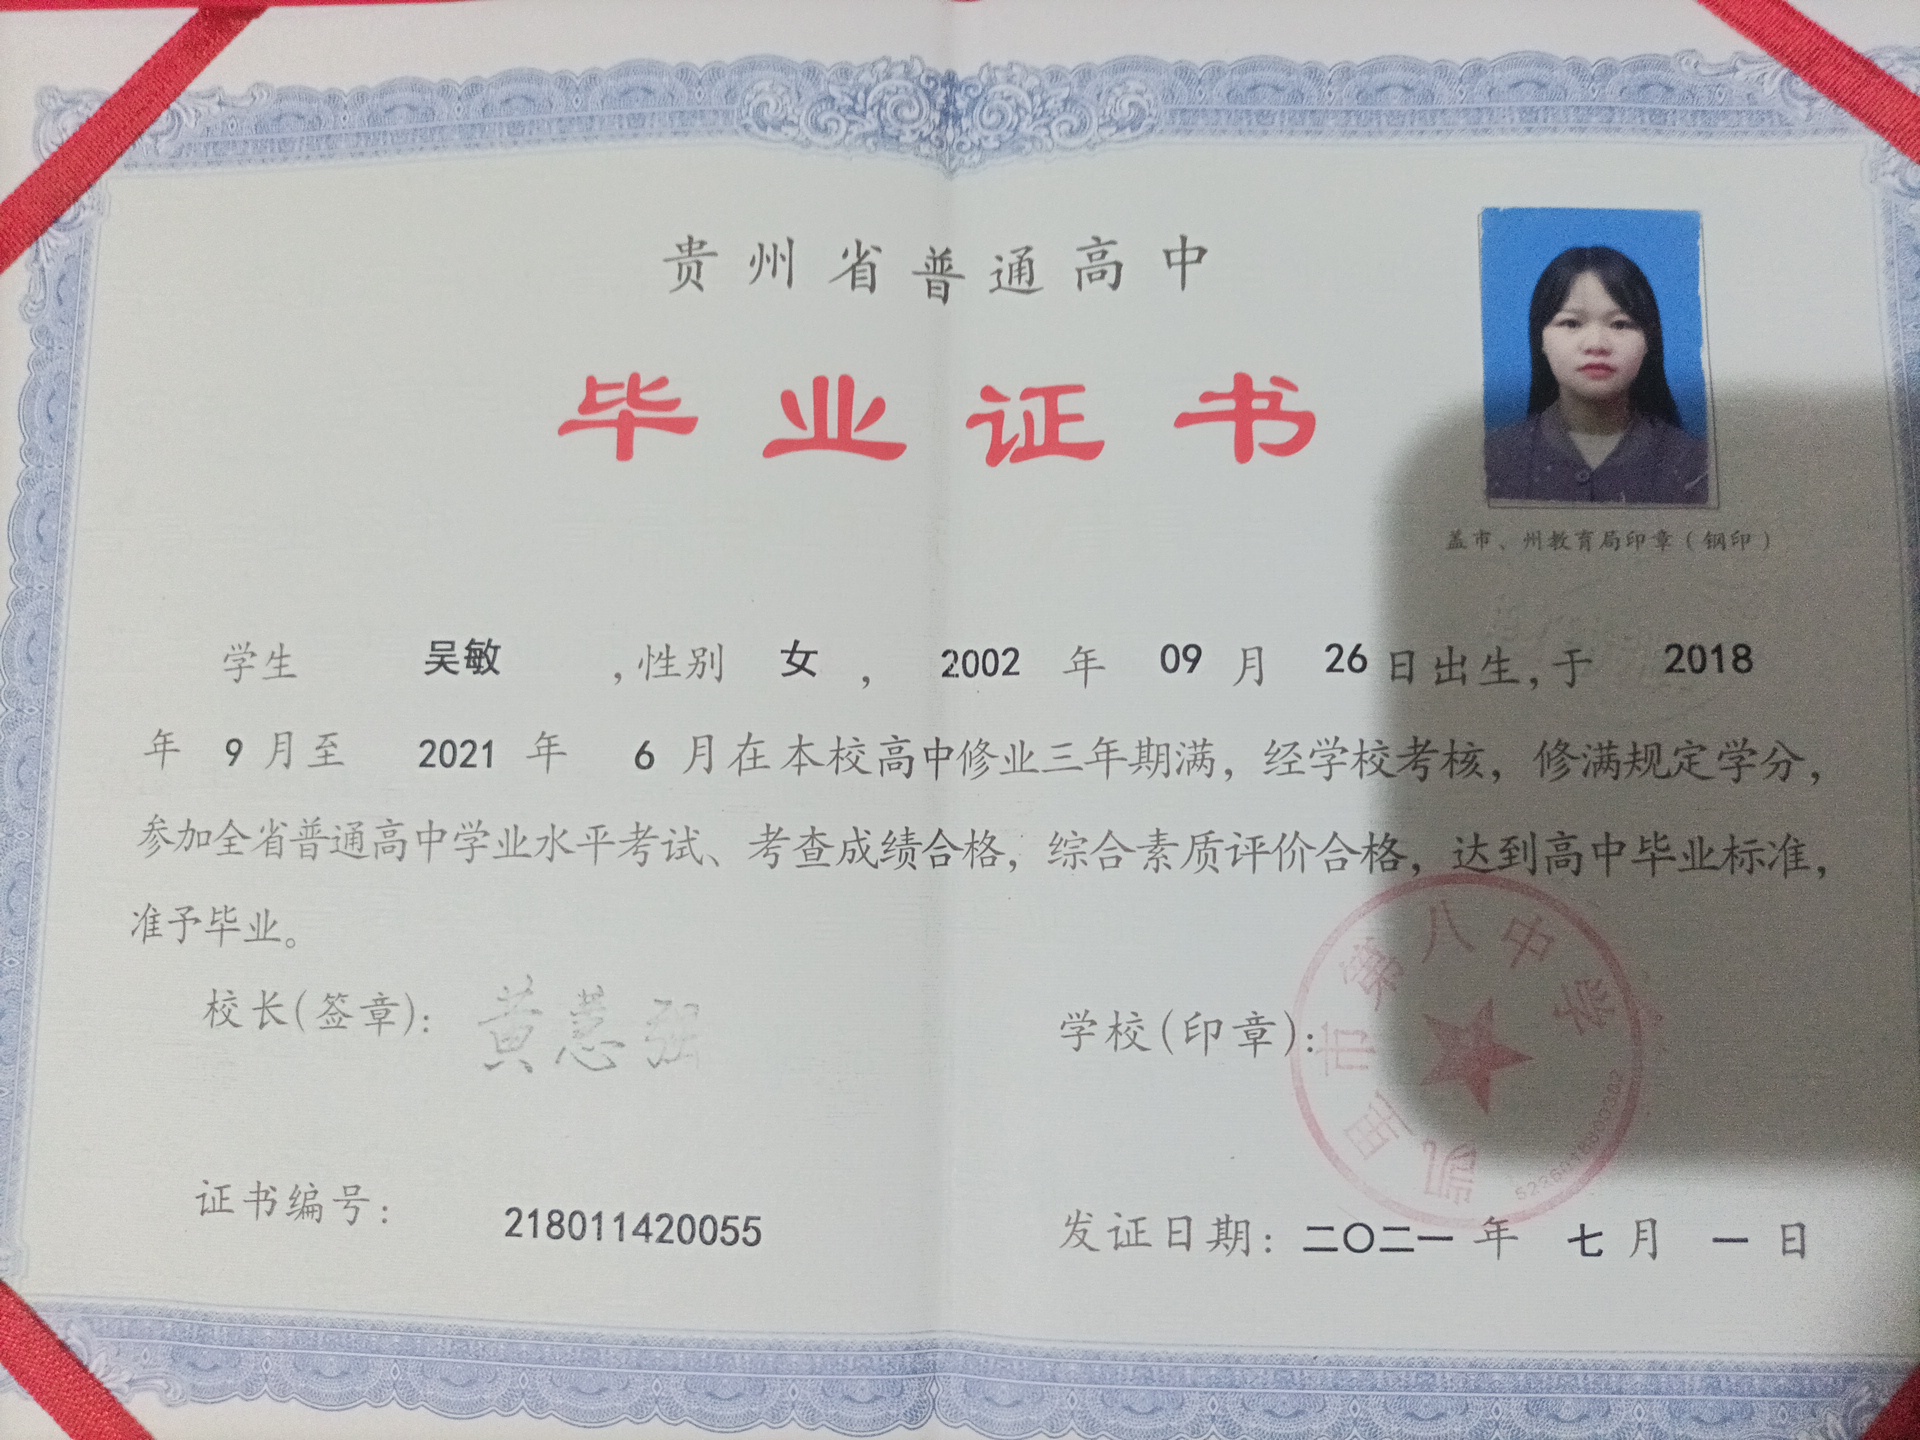 贵州省普通高中
毕业证书
盖市、州教育局印章(钢印)
学生 吴敏 ,性别 女 , 2002 年 09 月 26 日出生,于 2018
年 9 月至 2021 年 6 月在本校高中修业三年期满,经学校考核,修满规定学分,
参加全省普通高中学业水平考试、考查成绩合格,综合素质评价合格,达到高中毕业标准,
准予毕业。
校长(签章):
学校(印章):
凯里市第八中学
证书编号: 218011420055
发证日期: 二〇二一 年 七 月 一 日